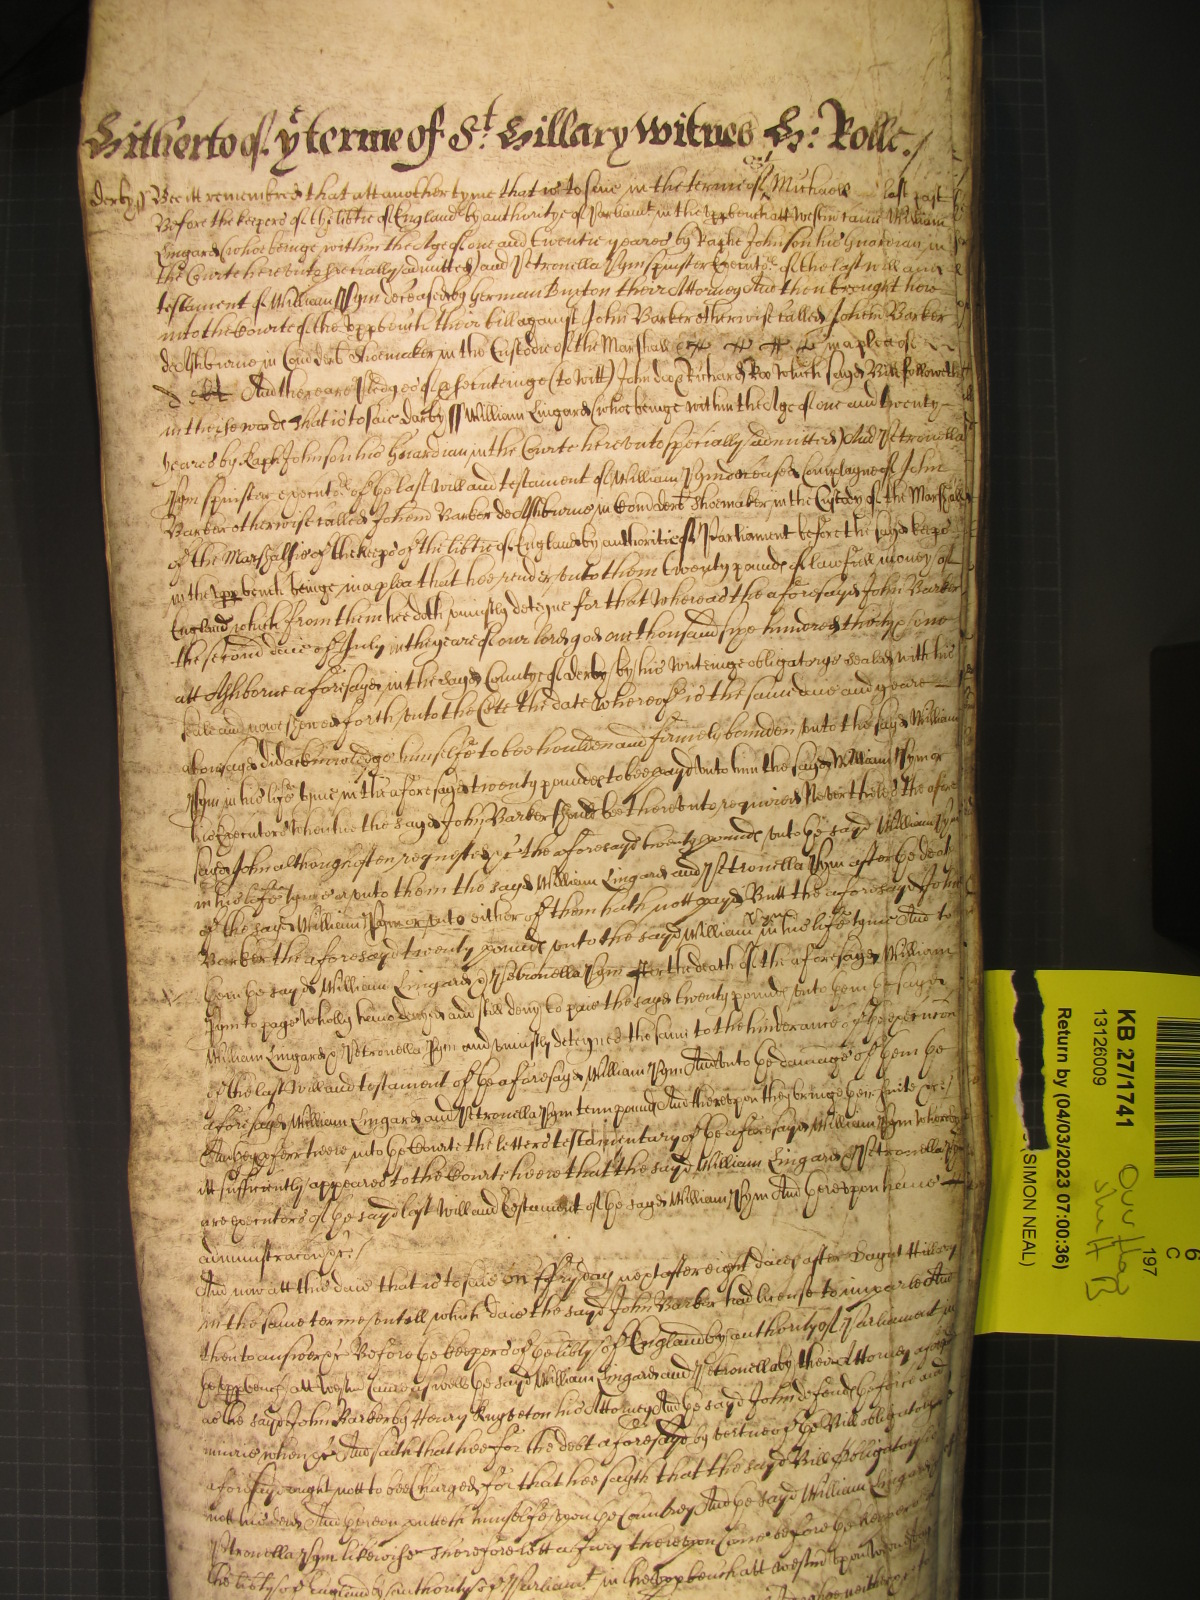 Hitherto of ye terme of St. Hillary Witnes H: Rolle./
Derby ss Bee itt remembred that att another tyme that is to saie in the terme of St Michaell last past
Before the keepers of the libtie of England by authoritye of Parliamt in the upp bench att Westm came William
Lingard (whoe beinge within the Age of one and twentie yeares by Raphe Johnson his Guardian in
the Courte hereunto specially admitted) and Petronella Pym spinster Executors of the last will and
testament of William Pym deceased by German Buxton theire Attorney And then brought here
into the Courte of the upp bench their bill against John Barker otherwise called Johem Barker
de Ashburne in Com Derb Shoemaker in the Custodie of the Marshall in a plea of
debt And there are pledges of prosecuteinge (to witt) John doe & Richard Roo which sayd Bill followeth
in these words That is to saie Derby ss William Lingard (whoe beinge within the Age of one and twenty
yeares by Raph Johnson his Guardian in the Courte hereunto specially admitted) And Petronella
Pym spinster executors of the last will and testament of William Pym deceased Complayne of John
Barker otherwise called Johem Barker de Ashburne in Com Derb Shoemaker in the Custody of the Marshall
of the Marshallsie of the keeps of the libtie of England by authoritie of Parliament before the sayd keeps
in the upp bench beinge in a plea that hee render unto them twenty pounds of lawfull money of
England which from them hee doth uniustly deteyne for that Whereas the aforesayd John Barker
the second daie of July in the yeare of our lord god one thousand sixe hundred
att Ashborne aforesayd in the sayd County of Derby by his writeinge obligatorye sealed with his
seale and nowe shewed forth unto the Cte the date whereof is the same daie and yeare
aforesayd did acknowledge himselfe to bee houlden and firmely bounden unto the sayd William
Pym in his life tyme in the aforesayd twenty pounds to bee payd unto him the sayd William Pym or
his Executors when hee the sayd John Barker should bee thereunto required Neverthelesse the afore
sayd John although often requested &c the aforesayd twenty pounds unto the sayd William Pym
in his life tyme or unto them the sayd William Lingard and Petronella Pym after the death
of the sayd William Pym or unto either of them hath nott payd Butt the aforesayd John
Barker the aforesayd twenty pounds unto the sayd William Pym in his life tyme And to
them the sayd William Lingard & Petronella Pym after the death of the aforesayd William
Pym to paye wholly hath denyed and still deny to paie the sayd twenty pounds unto them the sayd
William Lingard & Petronella Pym and uniustly deteyned the same to the hinderance of the execucon
of the last Will and testament of the aforesayd William Pym And unto the damage of them the
aforesayd William Lingard and Petronella Pym tenn pounds And thereupon they bringe their suite &c:/
And they proferr heere into the Courte the letters testamentary of the aforesayd William Pym whereby
itt sufficiently appeares to the Courte heere that the sayd William Lingard & Petronella Pym
are executors of the sayd last Will and testament of the sayd William Pym And thereupon have
administracon &c:/
And now att this daie that is to saie on Fryday next after eight daies after Saynt Hillary
in the same terme untill which daie the sayd John Barker had license to imparle And
then to answer &c Before the keepers of the libty of England by authority of Parliament in
the upp bench att Westm came aswell the sayd William Lingard and Petronella by theire Attorney aforesayd
as the sayd John Barker by Henry Kingston his Attorney And the sayd John defends the force and
iniurie when &c And saith that hee for the debt aforesayd by vertue of the Bill obligatory
aforesayd ought nott to bee Charged for that hee sayth that the sayd Bill Obligatory is
not his deed And thereon putteth himselfe upon the Countrey And the sayd William Lingard
Petronella Pym likewise Therefore lett a Jury thereupon Come before the keepers of
the libty of England by authority of Parliamt in the upp bench att Westm upon
KB 27/1741
13126009
Return by (04/03/2023 07:00:36)
SIMON NEAL)
6
C
197